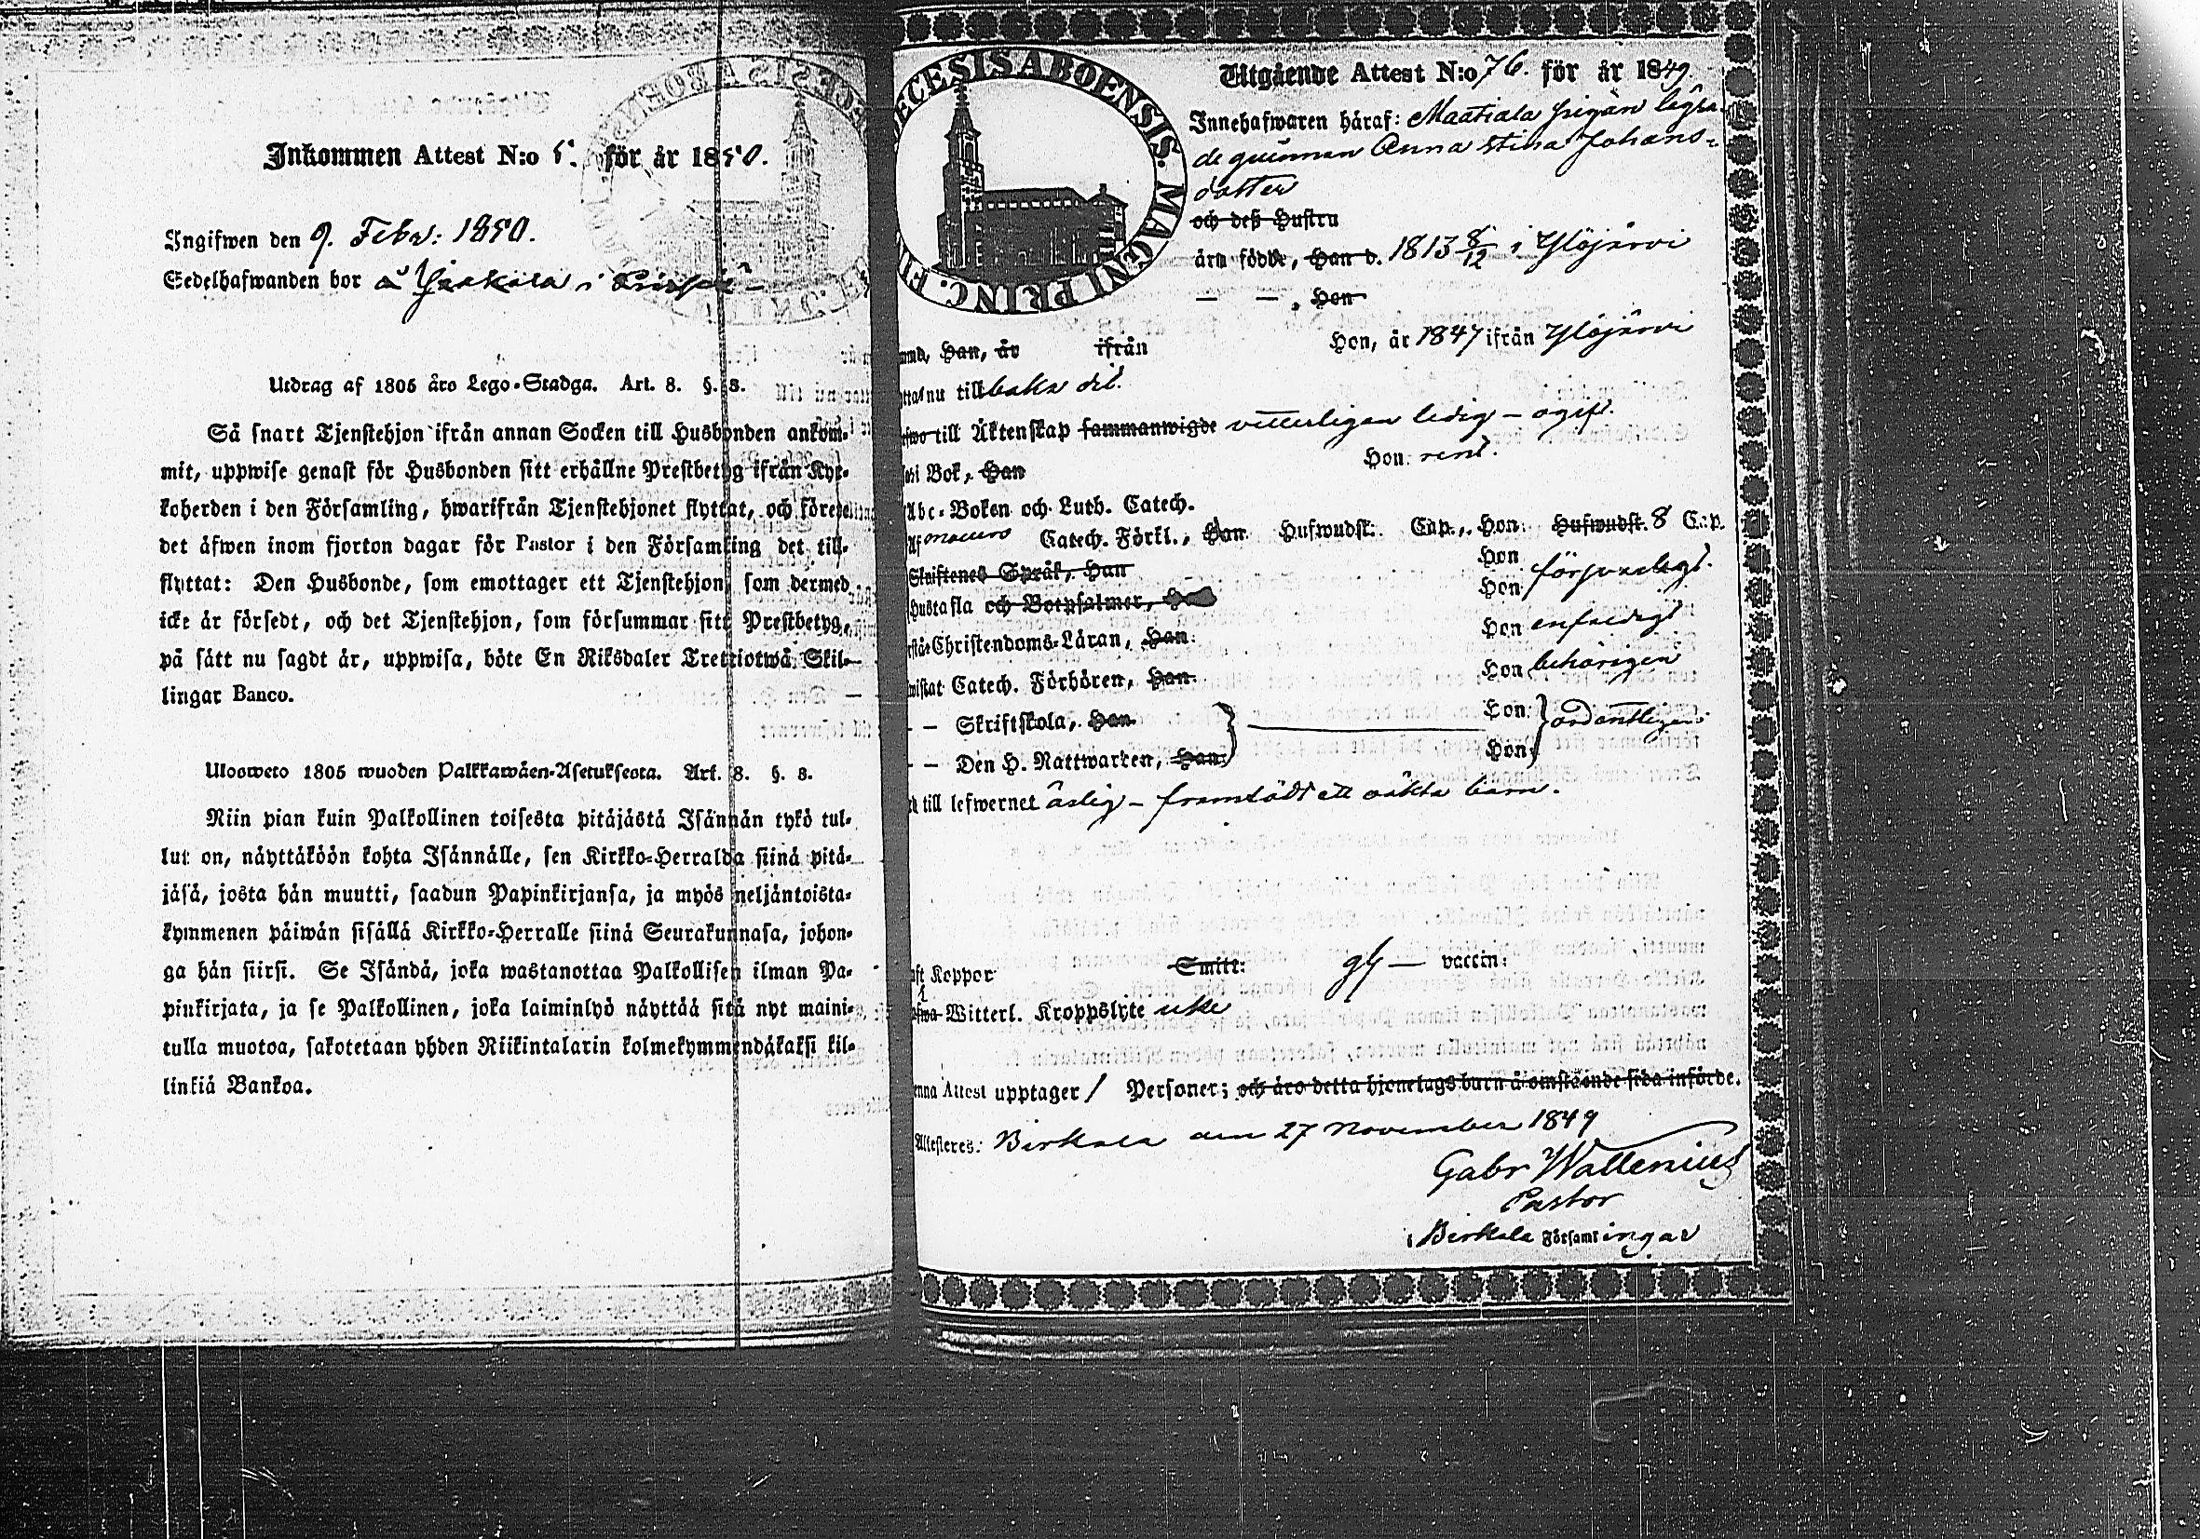 Inkommen Attest N:o 5. för år 1850.
Ingifwen den 9. Febr: 1850.
Sedelhafwanden bor å i
Utdrag af 1805 års Lego-Stadga. Art. 8. §. 8.
Så snart Tjenstehjon ifrån annan Socken till Husbonden ankom-
mit, uppwise genast för Husbonden sitt erhållne Prestbetyg ifrån Kyr-
koherden i den Församling, hwarifrån Tjenstehjonet flyttat, och förete
det äfwen inom fjorton dagar för Pastor i den Församling det till-
flyttat: Den Husbonde, som emottager ett Tjenstehjon, som dermed
icke är försedt, och det Tjenstehjon, som försummar sitt Prestbetyg,
på sätt nu sagdt är, uppwisa, böte En Riksdaler Trettiotwå Skil-
lingar Banco.
Ulosweto 1805 wuoden Palkkawäen-Asetuksesta. Art. 8. §. 8.
Niin pian kuin Palkollinen toisesta pitäjästä Isännän tykö tul-
lut on, näyttäköön kohta Isännälle, sen Kirkko-Herralda siinä pitä-
jäsä, josta hän muutti, saadun Papinkirjansa, ja myös neljäntoista-
kymmenen päiwän sisällä Kirkko-Herralle siinä Seurakunnasa, johon-
ga hän siirsi. Se Isändä, joka wastanottaa Palkollisen ilman Pa-
pinkirjata, ja se Palkollinen, joka laiminlyö näyttää sitä nyt maini-
tulla muotoa, sakotetaan yhden Riikintalarin kolmekymmendäkaksi kil-
linkiä Bankoa.
ECESIS ABOENSIS. MAGNI PRINC. FI
Utgående Attest N:o 76. för år 1849
Innehafwaren häraf: Maatiala pigan lägra-
de quinnan Anna Stina Johans-
dotter
och deß Hustru
äro födde, Han d. 1813 8/12 i Ylöjärvi
— —, Hon
Hon, år 1847 ifrån Ylöjärvi
Han, år ifrån
nu tillbaka dit.
till Äktenskap sammanwigde vitterligen ledig – ogift.
i Bok, Han Hon rent.
Abc-Boken och Luth. Catech.
Af Catech. Förkl., Han Hufwudst. Cap., Hon Hufwudst. 8 Cap.
Skriftenes Språk, Han Hon
Hustafla och Botpsalmer, Hon försvarligt.
Christendoms-Läran, Han Hon enfaldigt
Catech. Förhören, Han Hon behörigen
— — Skriftskola, Han Hon
— — Den H. Nattwarden, Han Hon ordentligen
till lefwernet ärlig – framfödt ett oäkta barn.
Koppor Smitt: gh — vaccin:
Witterl. Kroppslyte icke
Attest upptager 1 Personer; och äro detta hjonelags barn å omstående sida införde.
Attesteres: Birkala den 27 November 1849
Gabr Wallenius
Pastor
i Birkala Församlingar